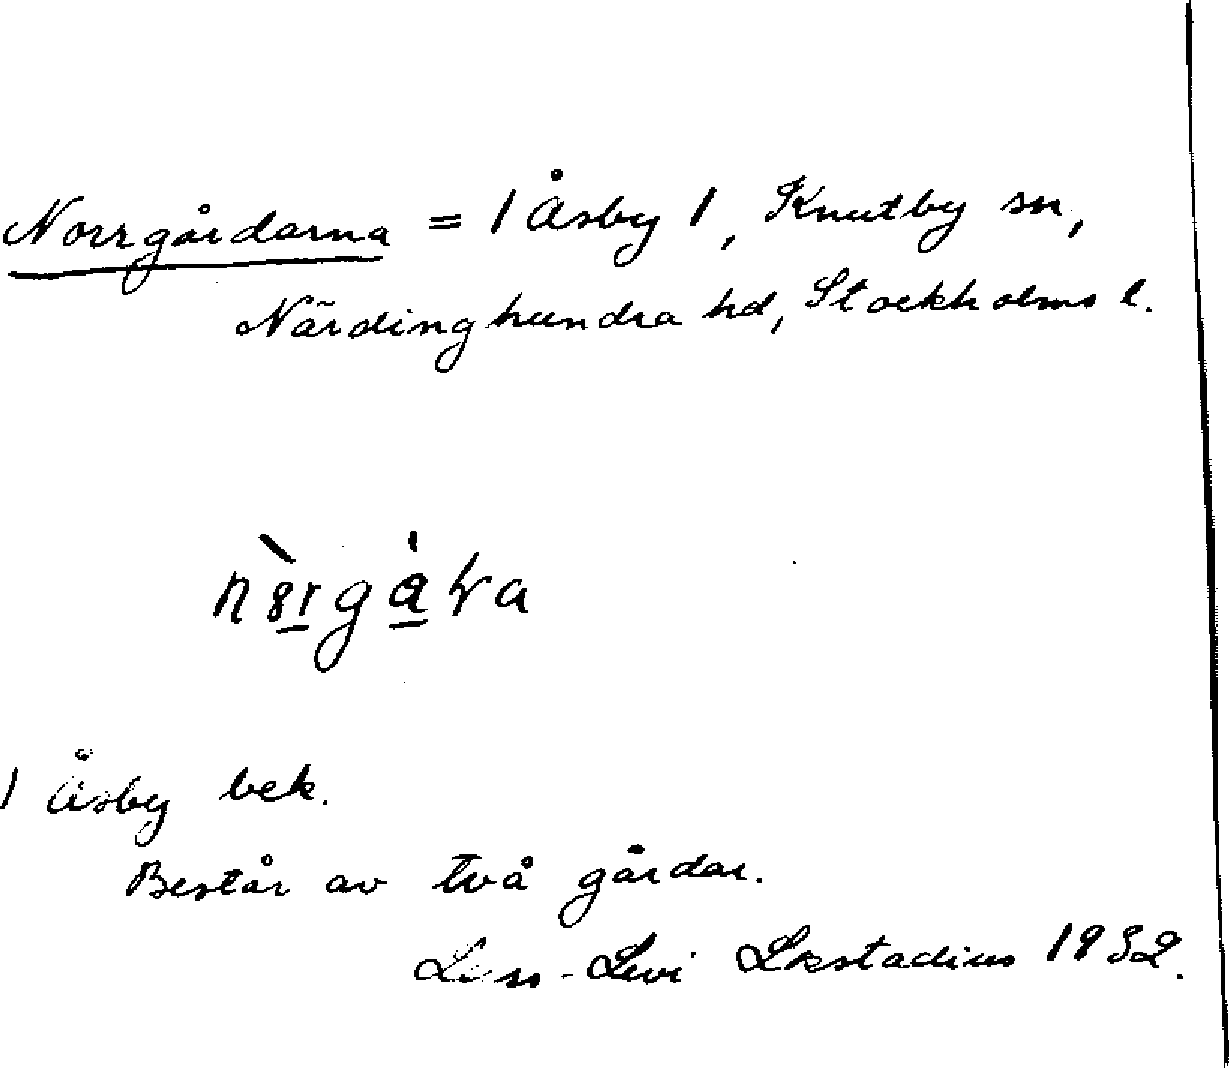 Norrgårdarna = 1 Åsby 1, Knutby sn,
Närdinghundra hd, Stockholms l.
1 Åsby bek.
Består av två gårdar.
Lars-Levi Læstadius 1932.